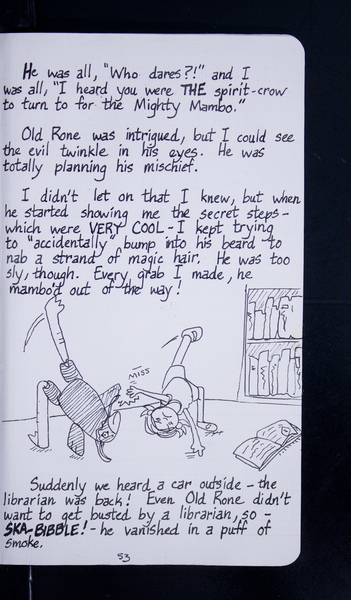 He was all, "Who dares?!" and I
was all, "I heard you were THE spirit-crow
to turn to for the Mighty Mambo."
Old Rone was intrigued, but I could see
the evil twinkle in his eyes. He was
totally planning his mischief.
I didn't let on that I knew, but when
he started showing me the secret steps-
which were VERY COOL-I kept trying
to "accidentally" bump into his beard to
nab a strand of magic hair. He was too
sly, though. Every grab I made, he
mambo'd out of the way!
MISS
Suddenly we heard a car outside - the
librarian was back! Even Old Rone didn't
want to get busted by a librarian, so -
SKA-BIBBLE! - he vanished in a puff of
smoke.
53